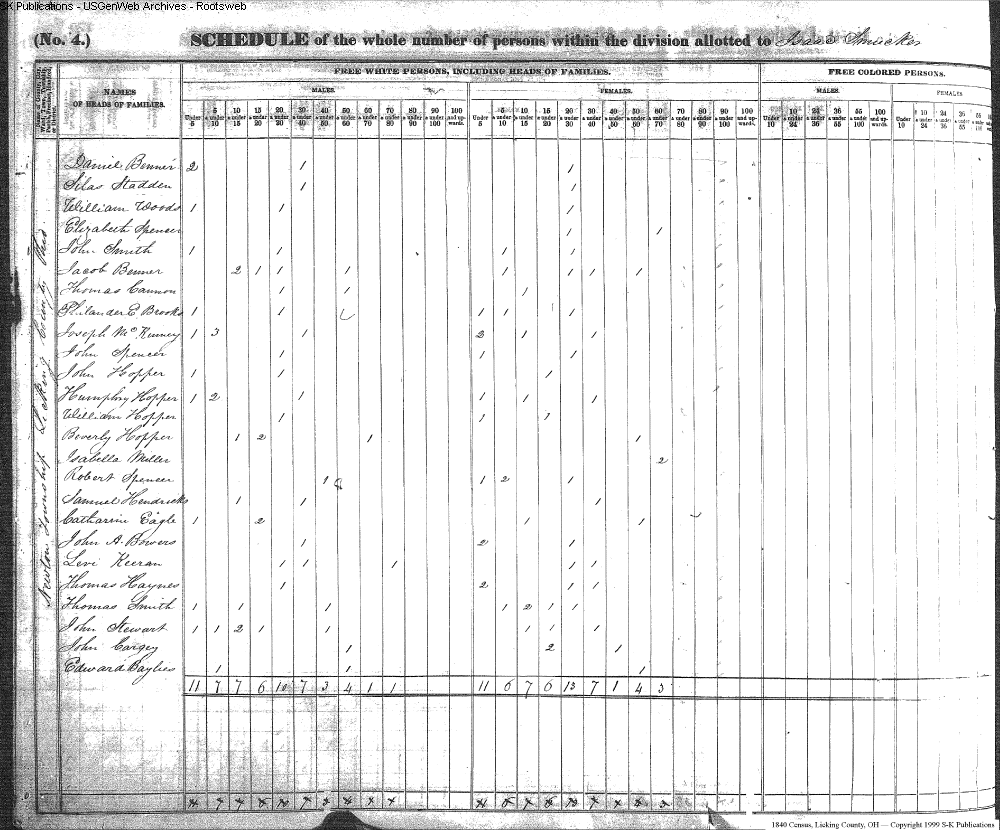 S-K Publications - USGenWeb Archives - Rootsweb
(No. 4.) SCHEDULE of the whole number of persons within the division allotted to Isaac Smucker
FREE WHITE PERSONS, INCLUDING HEADS OF FAMILIES. FREE COLORED PERSONS.
NAMES OF HEADS OF FAMILIES.
MALES. FEMALES. MALES. FEMALES
Under 5 5 & under 10 10 & under 15 15 & under 20 20 & under 30 30 & under 40 40 & under 50 50 & under 60 60 & under 70 70 & under 80 80 & under 90 90 & under 100 100 and upwards. Under 5 5 & under 10 10 & under 15 15 & under 20 20 & under 30 30 & under 40 40 & under 50 50 & under 60 60 & under 70 70 & under 80 80 & under 90 90 & under 100 100 and upwards. Under 10 10 & under 24 24 & under 36 36 & under 55 55 & under 100 100 and upwards. Under 10 10 & under 24 24 & under 36 36 & under 55
Newton Township Licking County Ohio.
Daniel Benner 2 1 1
Silas Stadden 1 1
William Woods 1 1 1
Elizabeth Spencer 1 1
John Smith 1 1 1 1
Jacob Benner 2 1 1 1 1 1 1 1
Thomas Cannon 1 1 1
Philander E Brooks 1 1 1 1 1
Joseph McKinney 1 3 1 2 1 1
John Spencer 1 1 1
John Hopper 1 1 1
Humphry Hopper 1 2 1 1 1 1
William Hopper 1 1 1
Beverly Hopper 1 2 1 1
Isabella Miller 2
Robert Spencer 1 1 2 1
Samuel Hendricks 1 1 1
Catharine Eagle 1 2 1 1
John A. Bowers 1 2 1
Levi Keeran 1 1 1 1 1
Thomas Haynes 1 2 1 1
Thomas Smith 1 1 1 1 2 1 1
John Stewart 1 1 2 1 1 1 1 1
John Cargey 1 2 1
Edward Baylies 1 1 1
11 7 7 6 10 7 3 4 1 1 11 6 7 6 13 7 1 4 3
1840 Census, Licking County, OH — Copyright 1999 S-K Publications